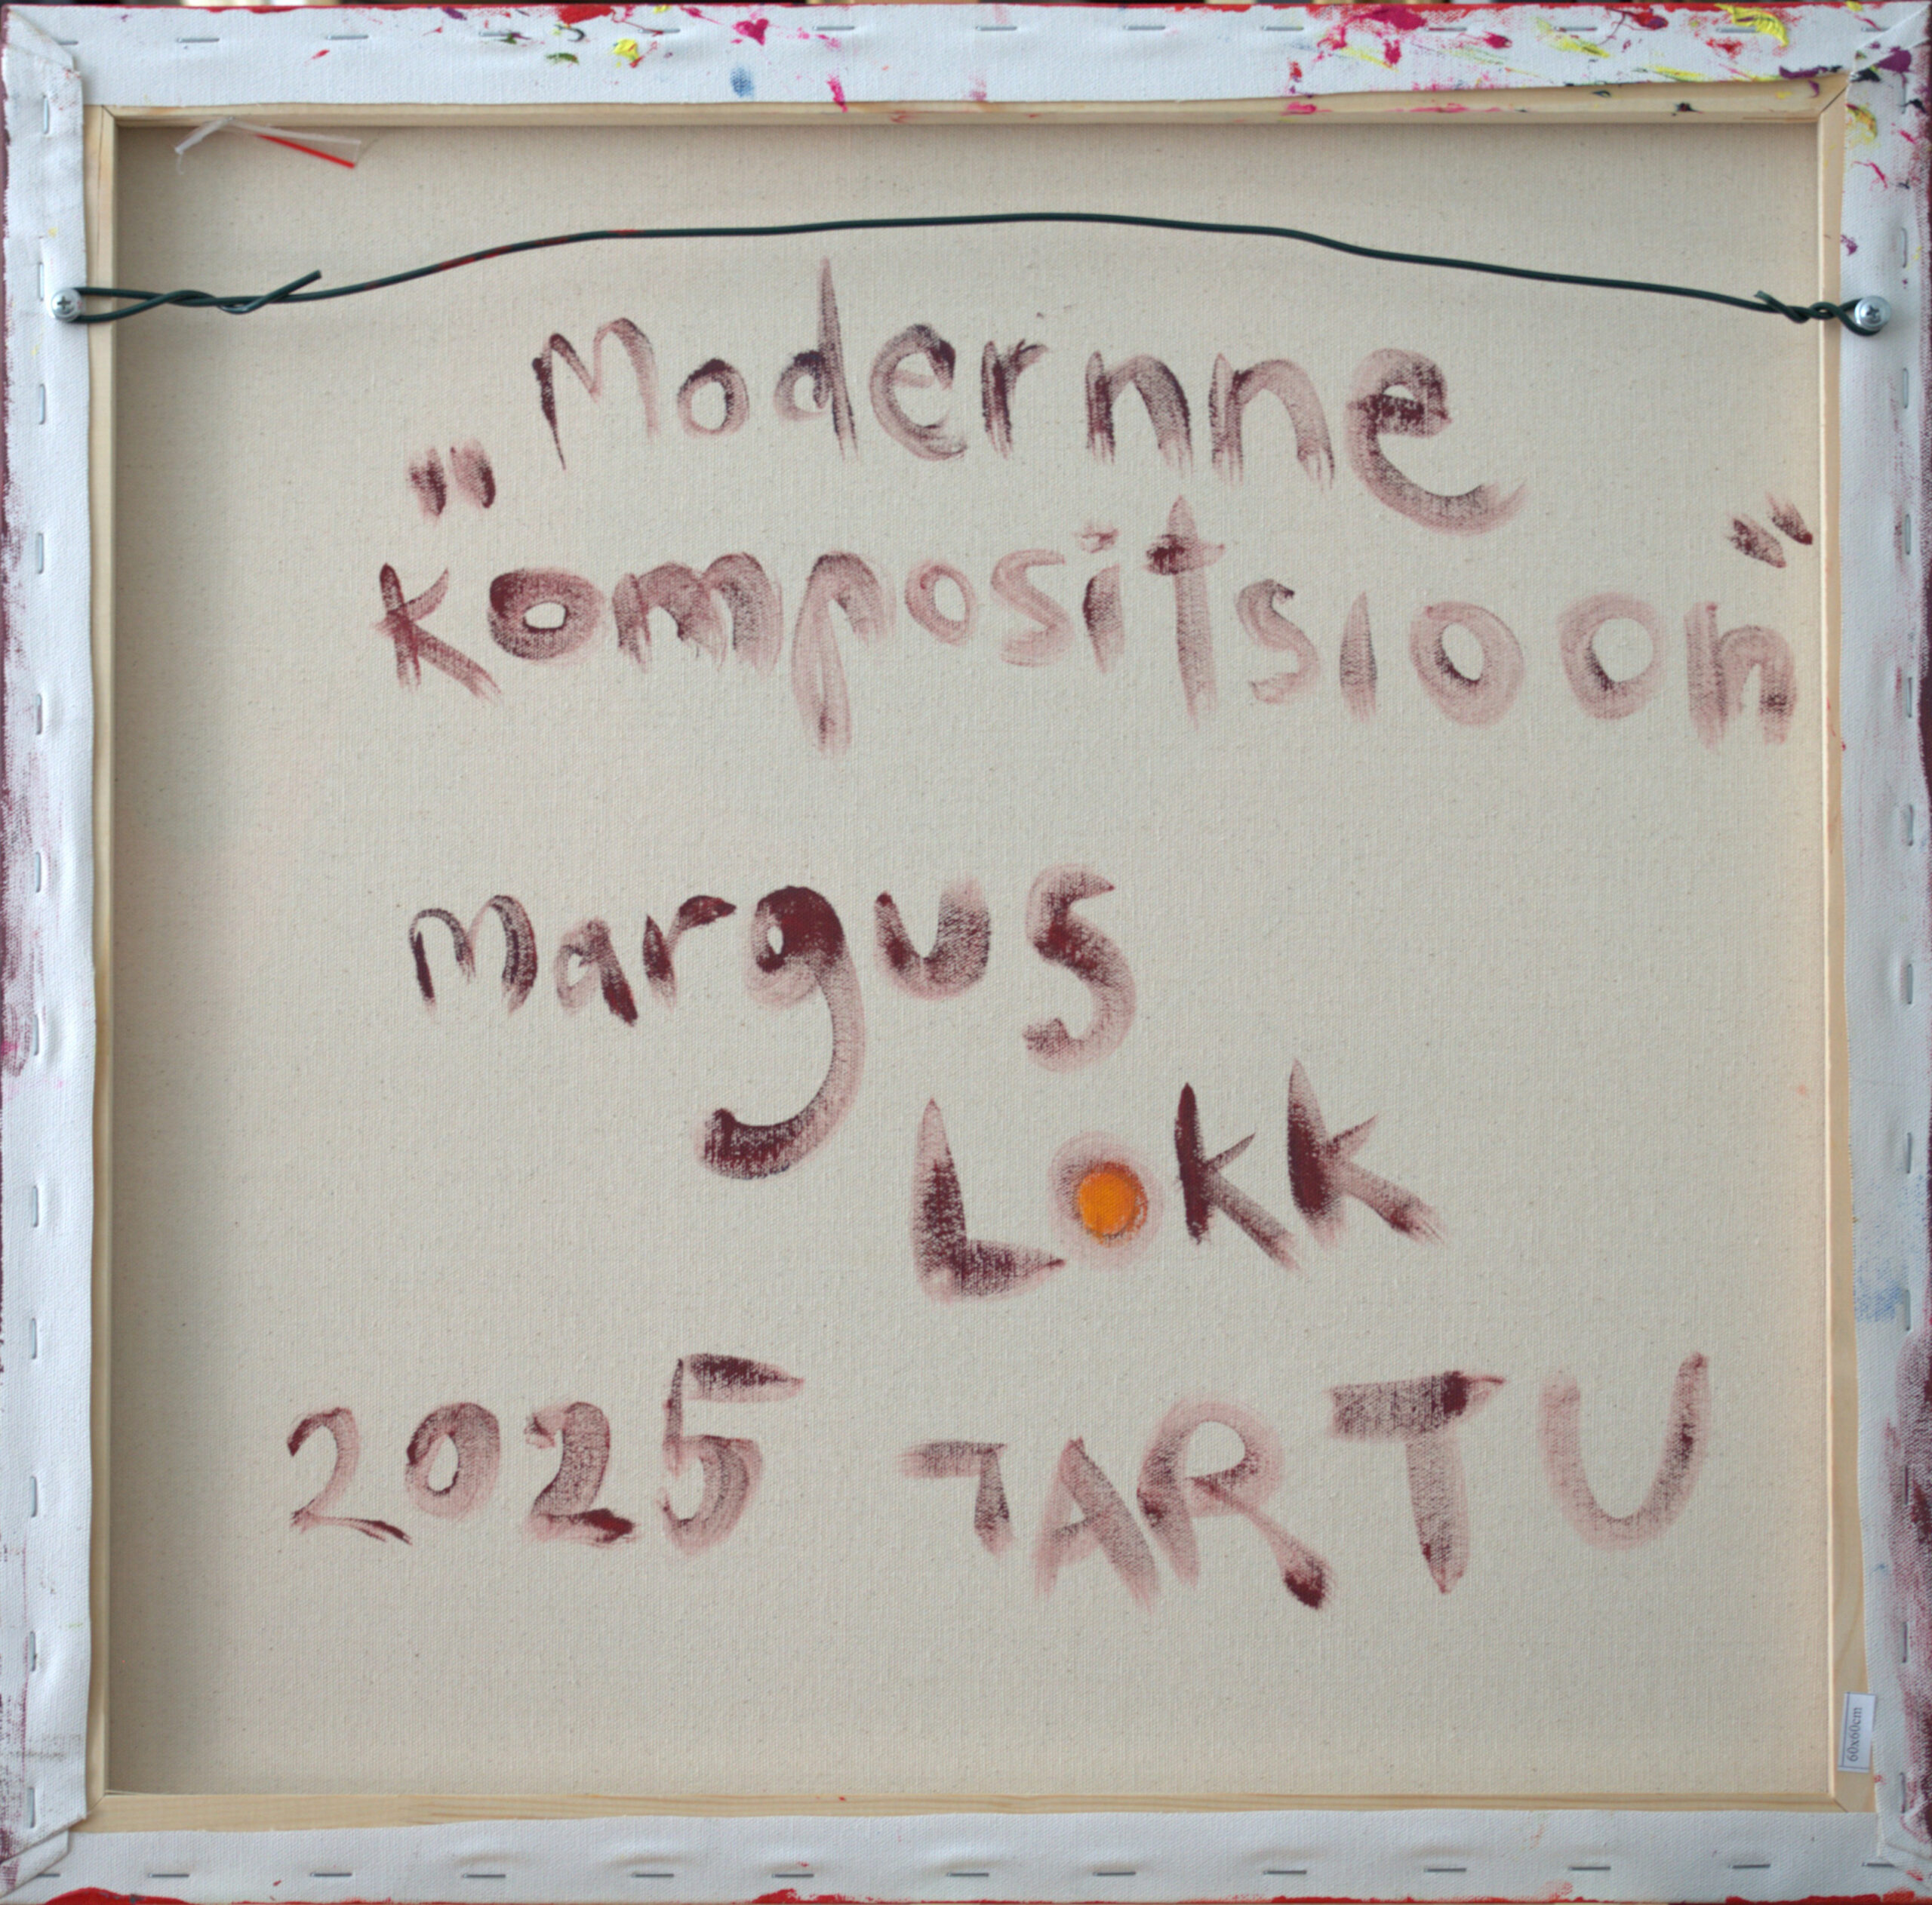 "Modernne
Kompositsioon"
Margus
Lokk
2025 TARTU
60x60cm